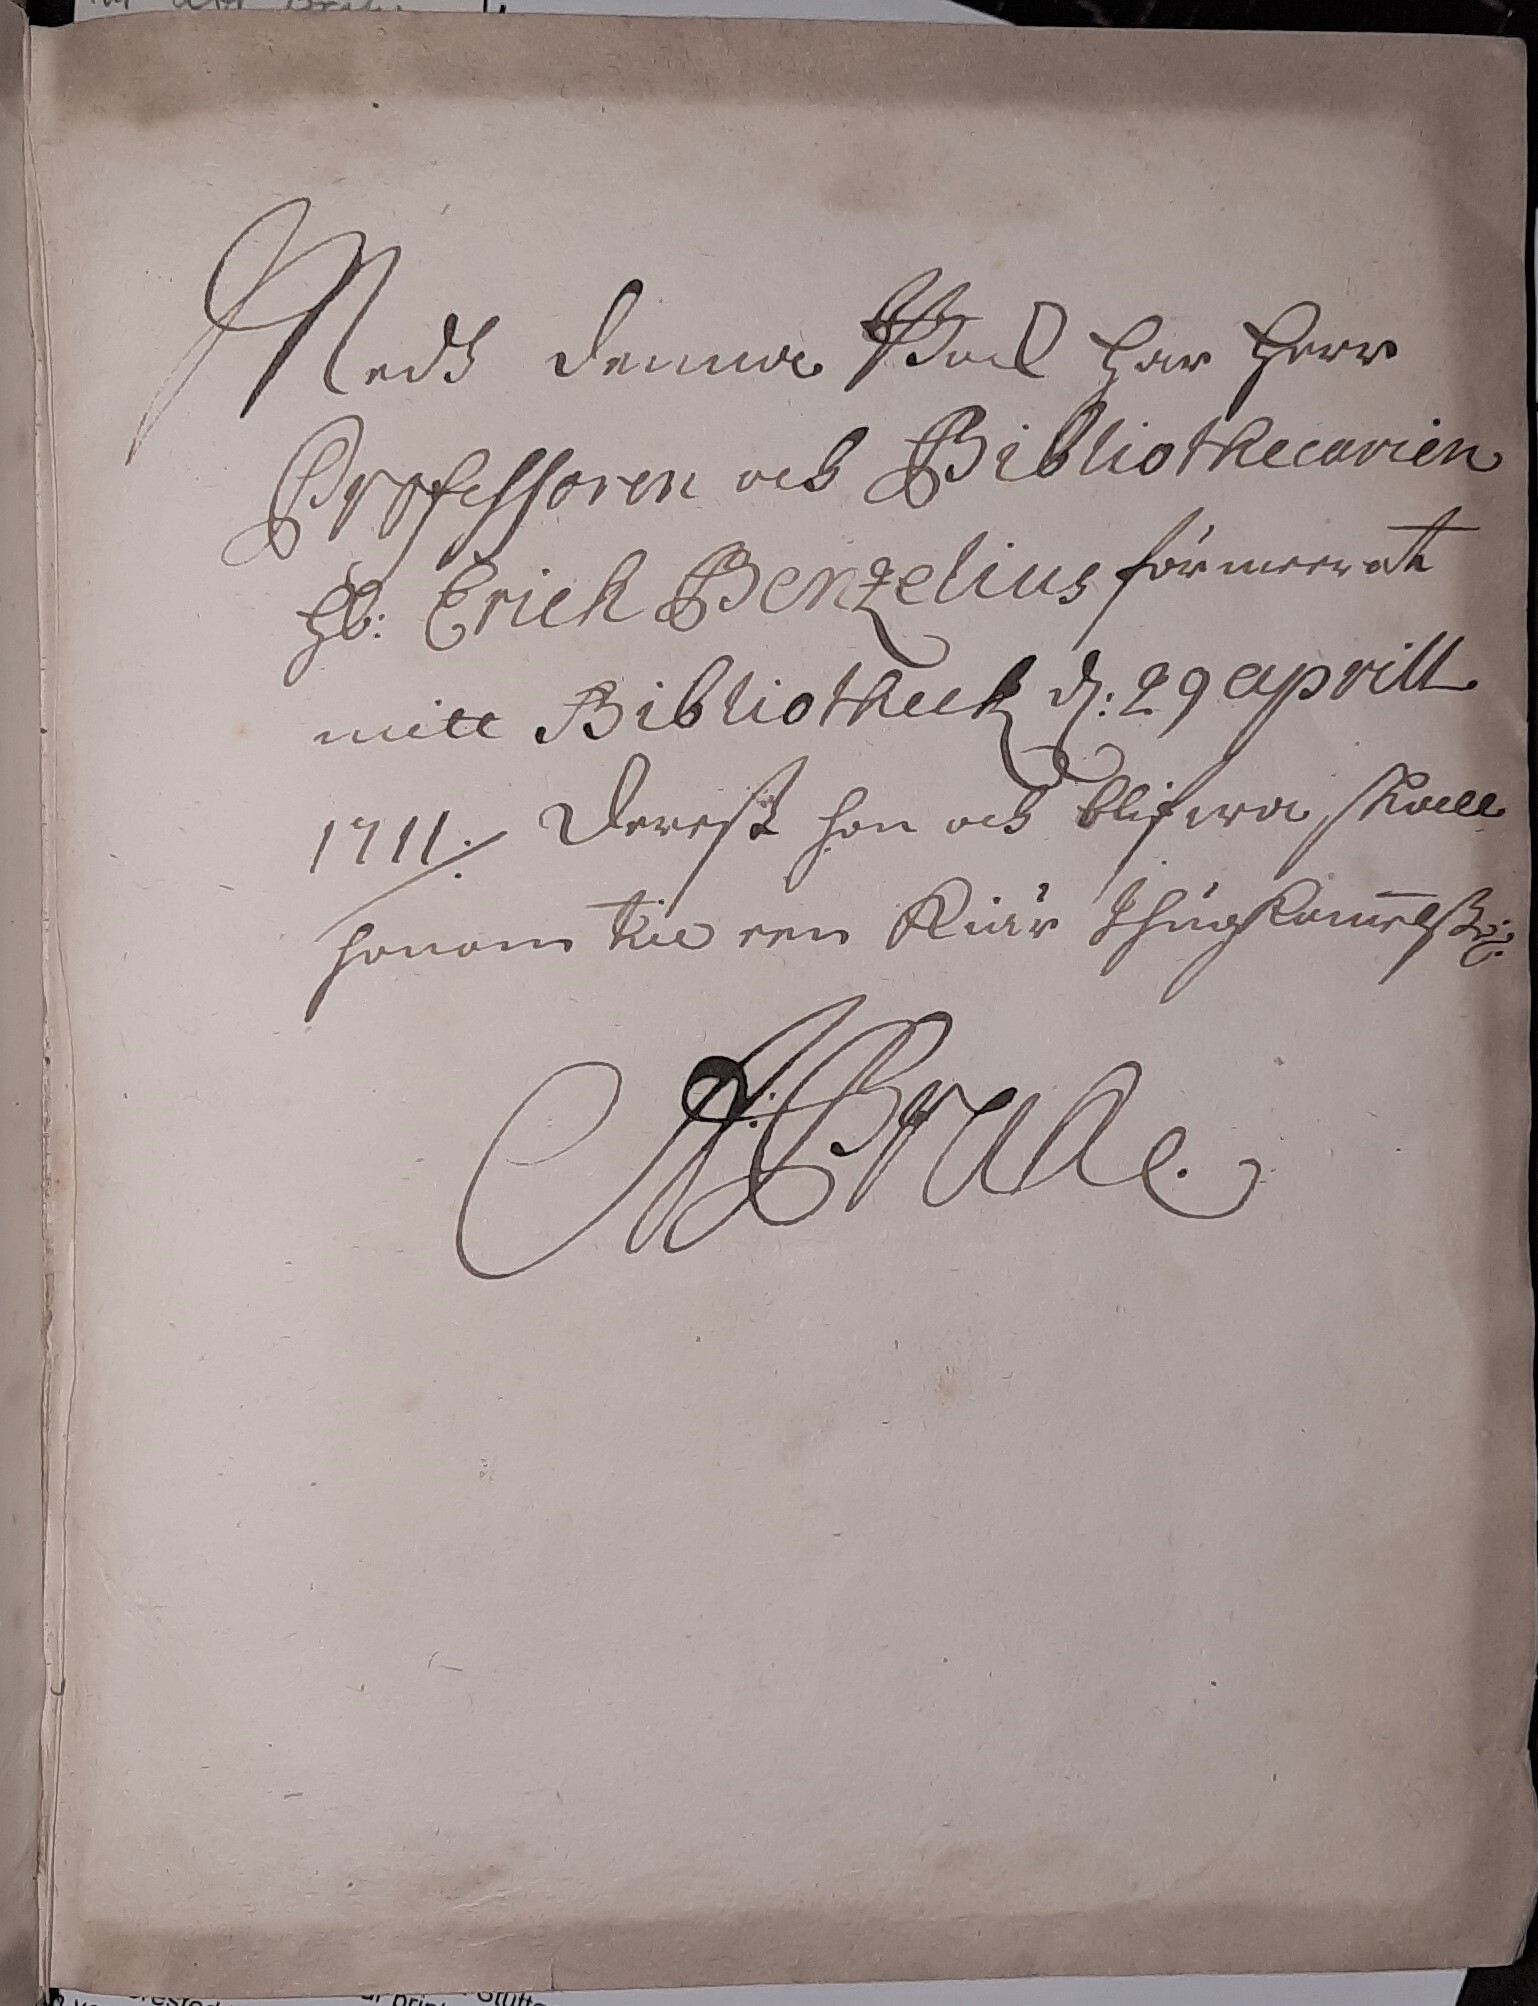 Medh denna Book har Herr
Professoren och Bibliothecarien
H: Erich Benzelius förmeerat
mitt Bibliotheck d: 29 aprill
1711. Derest hon och blifwa skall
honom till een kiär ihugkommelse:
A: Brahe.